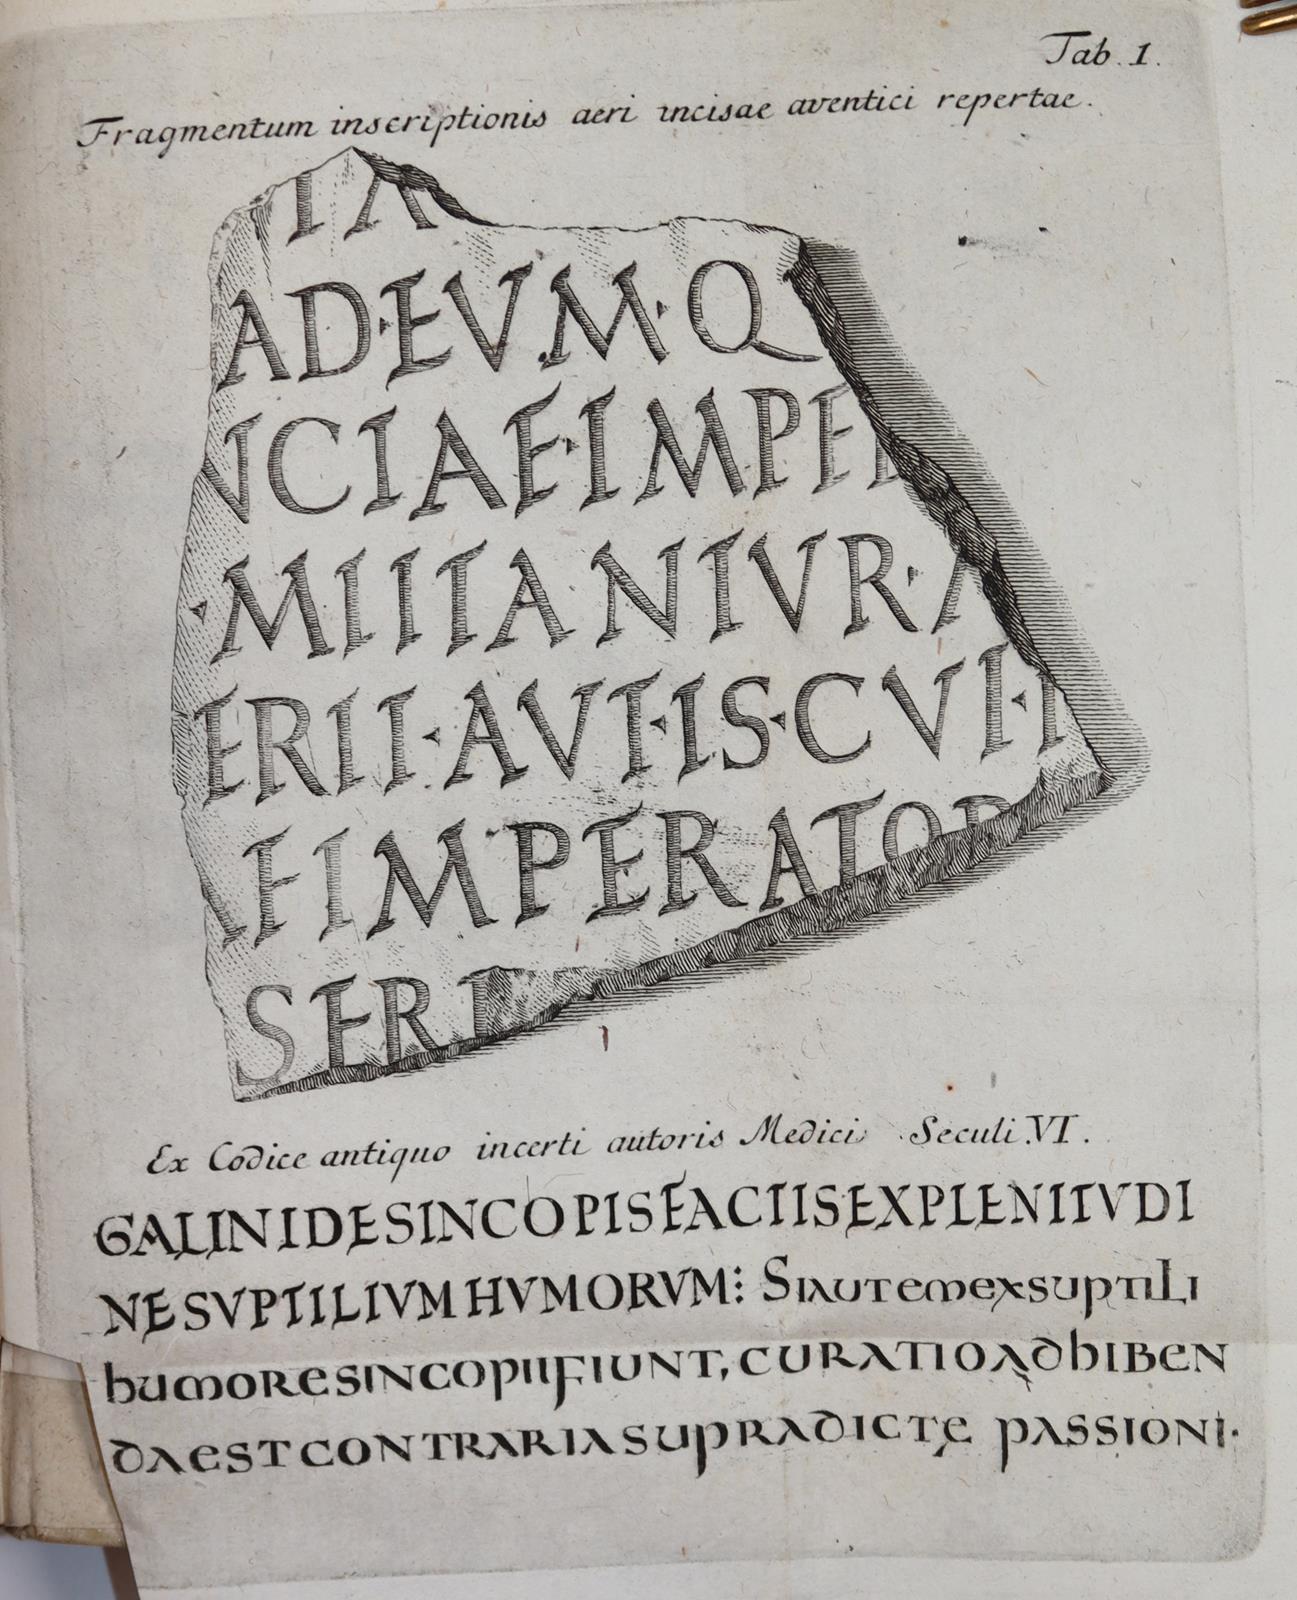 Tab. 1.
Fragmentum inscriptionis aeri incisae aventici repertae.
IA
AD·EVM·Q
NCIAE·IMPE
·MIIIANIVR·A
ERII·AVI·IS·CVI·I
AFIMPERATOR
SERI
Ex Codice antiquo incerti autoris Medici Seculi VI.
GALINIDESINCOPISFACTISEXPLENITVDI
NESVPTILIVMHVMORVM: Siautemexsuptili
humoresincopiifiunt, curatioadhiben
daestcontrariasupradictę passioni.